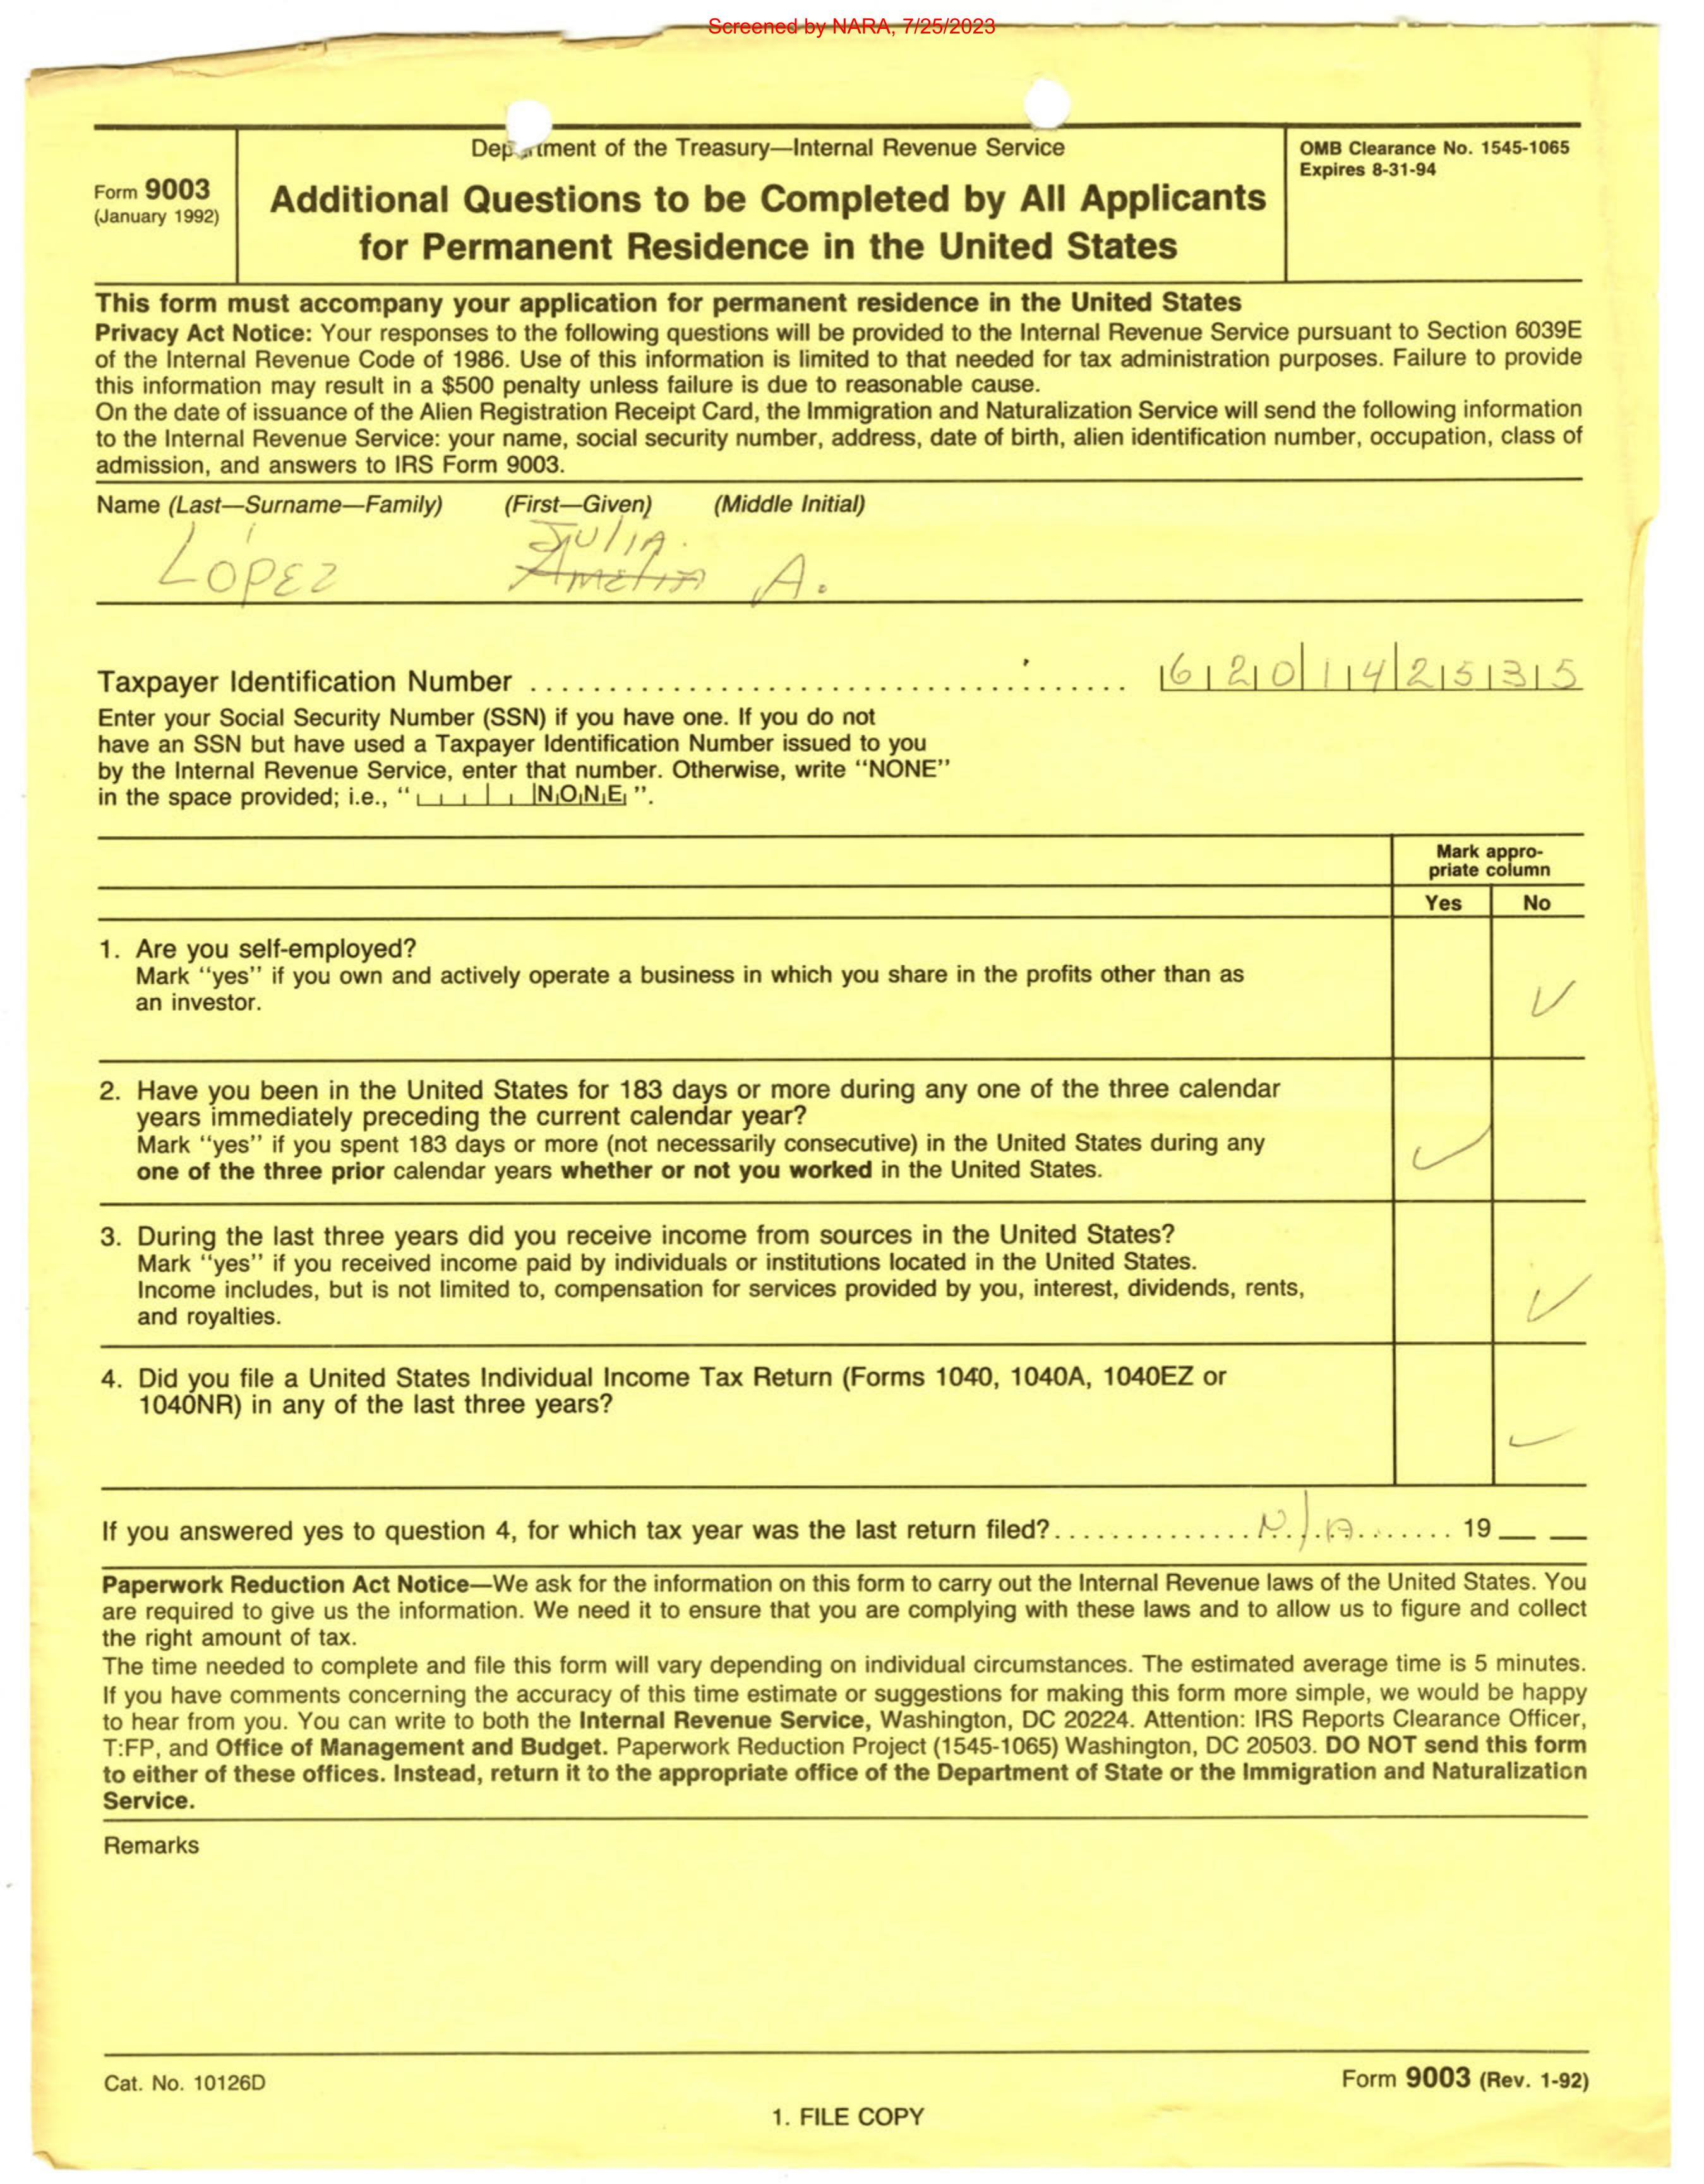 Screened by NARA, 7/25/2023
Department of the Treasury—Internal Revenue Service
OMB Clearance No. 1545-1065
Expires 8-31-94
Form 9003
(January 1992)
Additional Questions to be Completed by All Applicants
for Permanent Residence in the United States
This form must accompany your application for permanent residence in the United States
Privacy Act Notice: Your responses to the following questions will be provided to the Internal Revenue Service pursuant to Section 6039E
of the Internal Revenue Code of 1986. Use of this information is limited to that needed for tax administration purposes. Failure to provide
this information may result in a $500 penalty unless failure is due to reasonable cause.
On the date of issuance of the Alien Registration Receipt Card, the Immigration and Naturalization Service will send the following information
to the Internal Revenue Service: your name, social security number, address, date of birth, alien identification number, occupation, class of
admission, and answers to IRS Form 9003.
Name (Last—Surname—Family) (First—Given) (Middle Initial)
JULIA.
LÓPEZ Amelia A.
Taxpayer Identification Number ........................................ 620 14 2535
Enter your Social Security Number (SSN) if you have one. If you do not
have an SSN but have used a Taxpayer Identification Number issued to you
by the Internal Revenue Service, enter that number. Otherwise, write "NONE"
in the space provided; i.e., " NONE ".
Mark appro-
priate column
Yes No
1. Are you self-employed?
Mark "yes" if you own and actively operate a business in which you share in the profits other than as
an investor.
2. Have you been in the United States for 183 days or more during any one of the three calendar
years immediately preceding the current calendar year?
Mark "yes" if you spent 183 days or more (not necessarily consecutive) in the United States during any
one of the three prior calendar years whether or not you worked in the United States.
3. During the last three years did you receive income from sources in the United States?
Mark "yes" if you received income paid by individuals or institutions located in the United States.
Income includes, but is not limited to, compensation for services provided by you, interest, dividends, rents,
and royalties.
4. Did you file a United States Individual Income Tax Return (Forms 1040, 1040A, 1040EZ or
1040NR) in any of the last three years?
If you answered yes to question 4, for which tax year was the last return filed?...............N/A........ 19 __ __
Paperwork Reduction Act Notice—We ask for the information on this form to carry out the Internal Revenue laws of the United States. You
are required to give us the information. We need it to ensure that you are complying with these laws and to allow us to figure and collect
the right amount of tax.
The time needed to complete and file this form will vary depending on individual circumstances. The estimated average time is 5 minutes.
If you have comments concerning the accuracy of this time estimate or suggestions for making this form more simple, we would be happy
to hear from you. You can write to both the Internal Revenue Service, Washington, DC 20224. Attention: IRS Reports Clearance Officer,
T:FP, and Office of Management and Budget. Paperwork Reduction Project (1545-1065) Washington, DC 20503. DO NOT send this form
to either of these offices. Instead, return it to the appropriate office of the Department of State or the Immigration and Naturalization
Service.
Remarks
Cat. No. 10126D
Form 9003 (Rev. 1-92)
1. FILE COPY